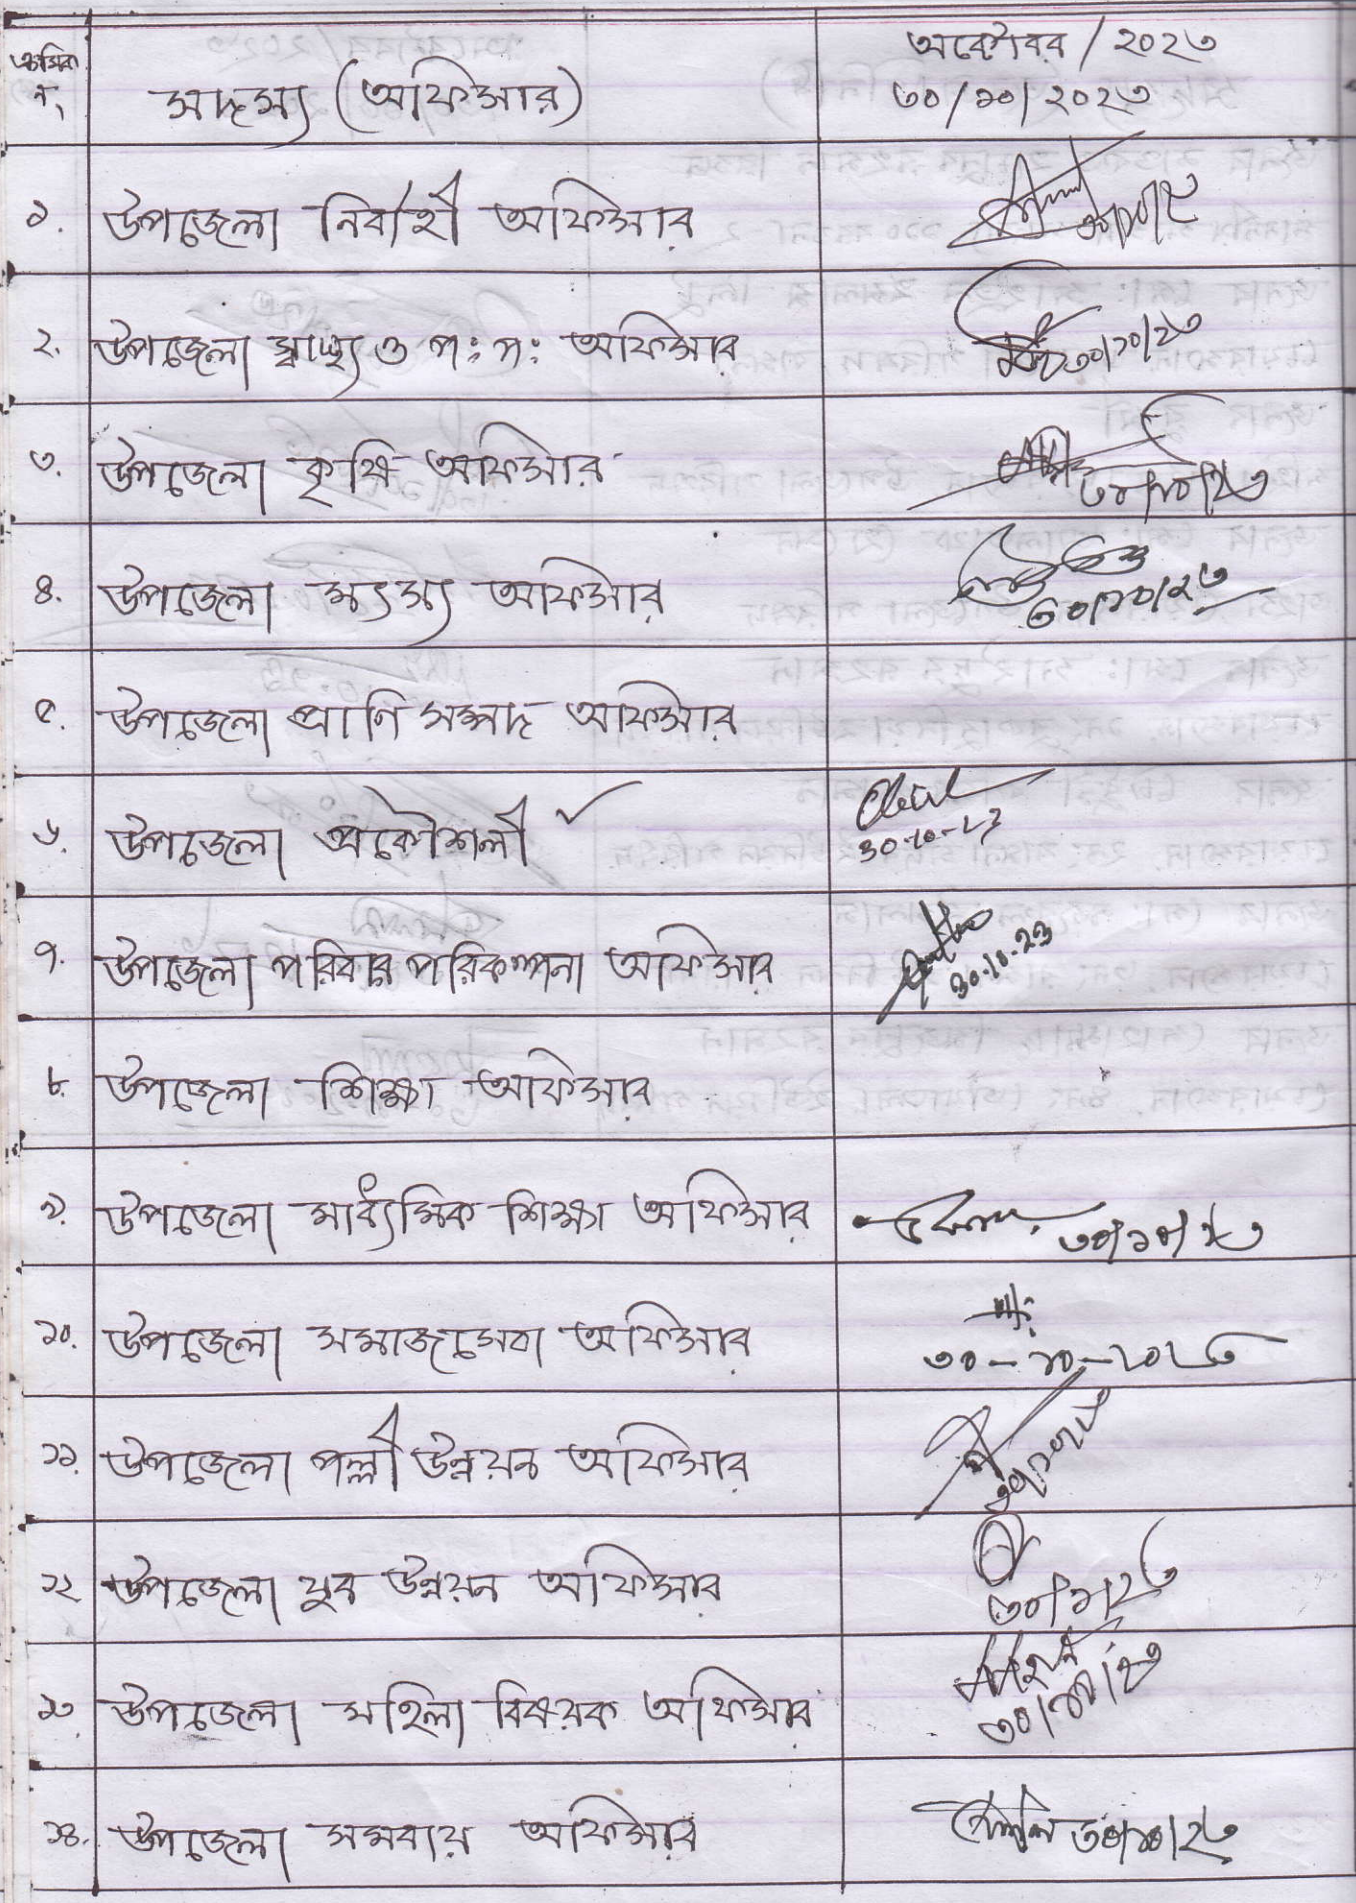 ক্রমিক নং
সদস্য (অফিসার)
অক্টোবর / ২০২৩
৩০/১০/২০২৩
১. উপজেলা নির্বাহী অফিসার
২. উপজেলা স্বাস্থ্য ও প: প: অফিসার ৩০/১০/২৩
৩. উপজেলা কৃষি অফিসার ৩০/১০/২৩
৪. উপজেলা মৎস্য অফিসার ৩০/১০/২৩
৫. উপজেলা প্রাণি সম্পদ অফিসার
৬. উপজেলা প্রকৌশলী ✓ 30-10-23
৭. উপজেলা পরিবার পরিকল্পনা অফিসার 30.10.23
৮. উপজেলা শিক্ষা অফিসার
৯. উপজেলা মাধ্যমিক শিক্ষা অফিসার ৩০/১০/২৩
১০. উপজেলা সমাজসেবা অফিসার ৩০-১০-২০২৩
১১. উপজেলা পল্লী উন্নয়ন অফিসার
১২ উপজেলা যুব উন্নয়ন অফিসার
১৩ উপজেলা মহিলা বিষয়ক অফিসার ৩০/১০/২৩
১৪. উপজেলা সমবায় অফিসার ৩০/১০/২৩